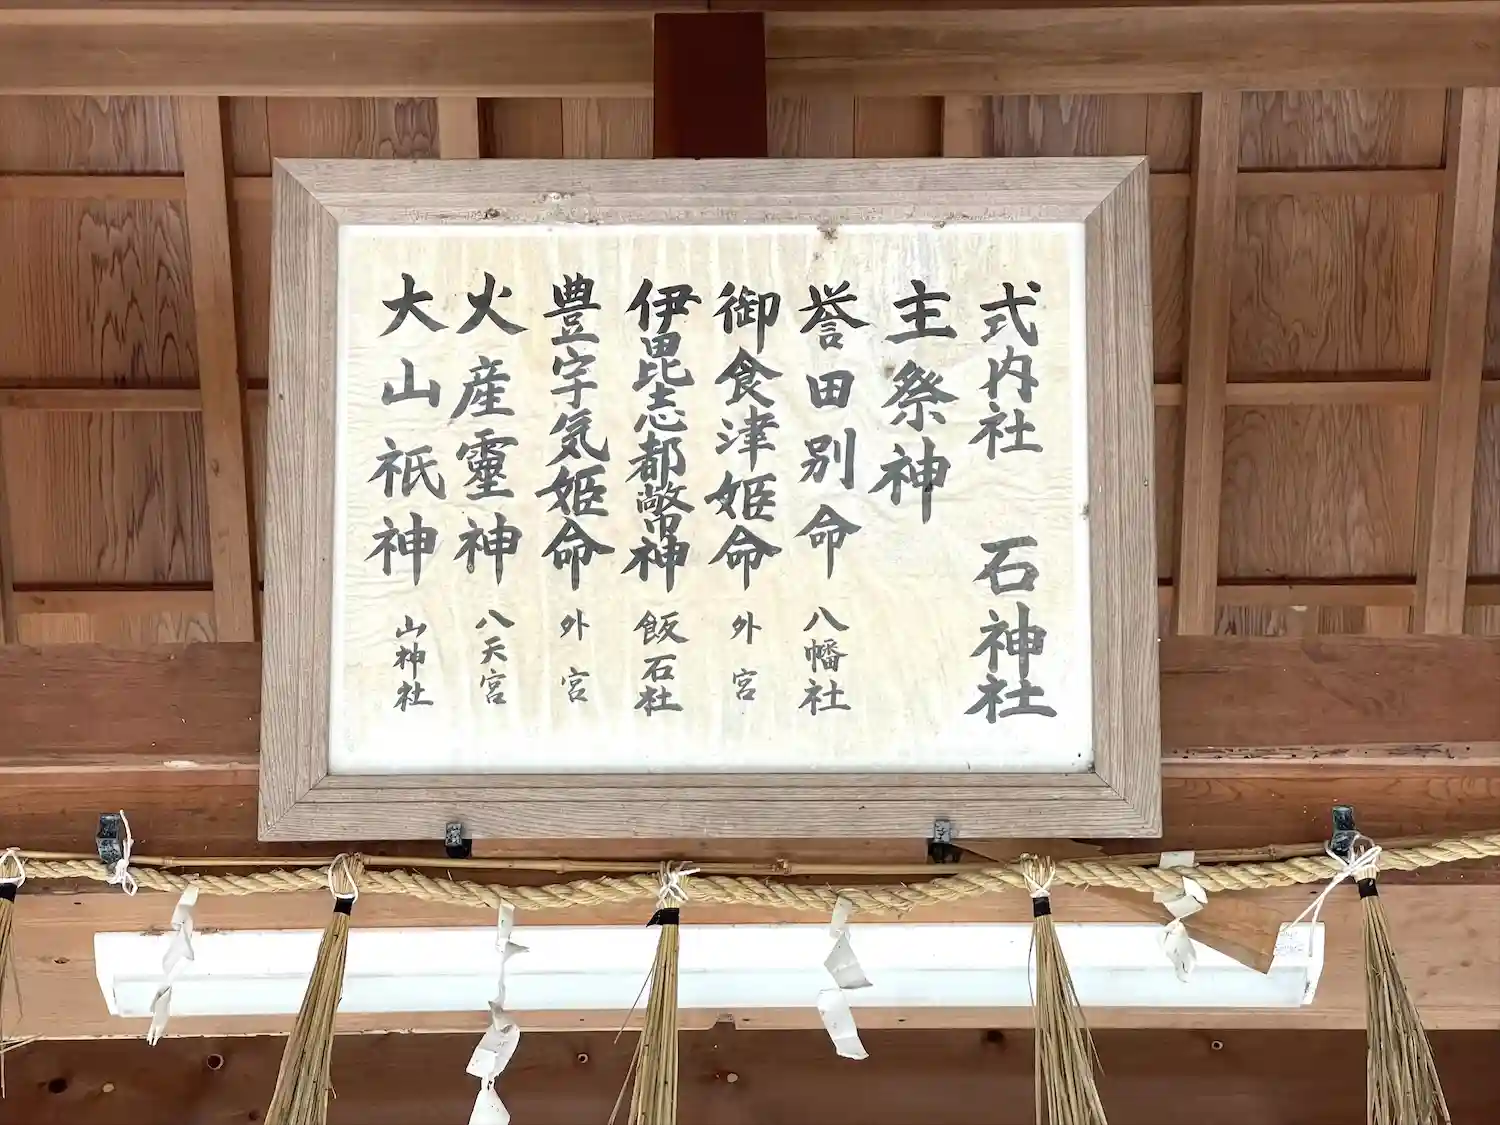 式内社 石神社
主祭神
誉田別命 八幡社
御食津姫命 外宮
伊毘志都幣神 飯石社
豊宇気姫命 外宮
火産靈神 八天宮
大山祇神 山神社